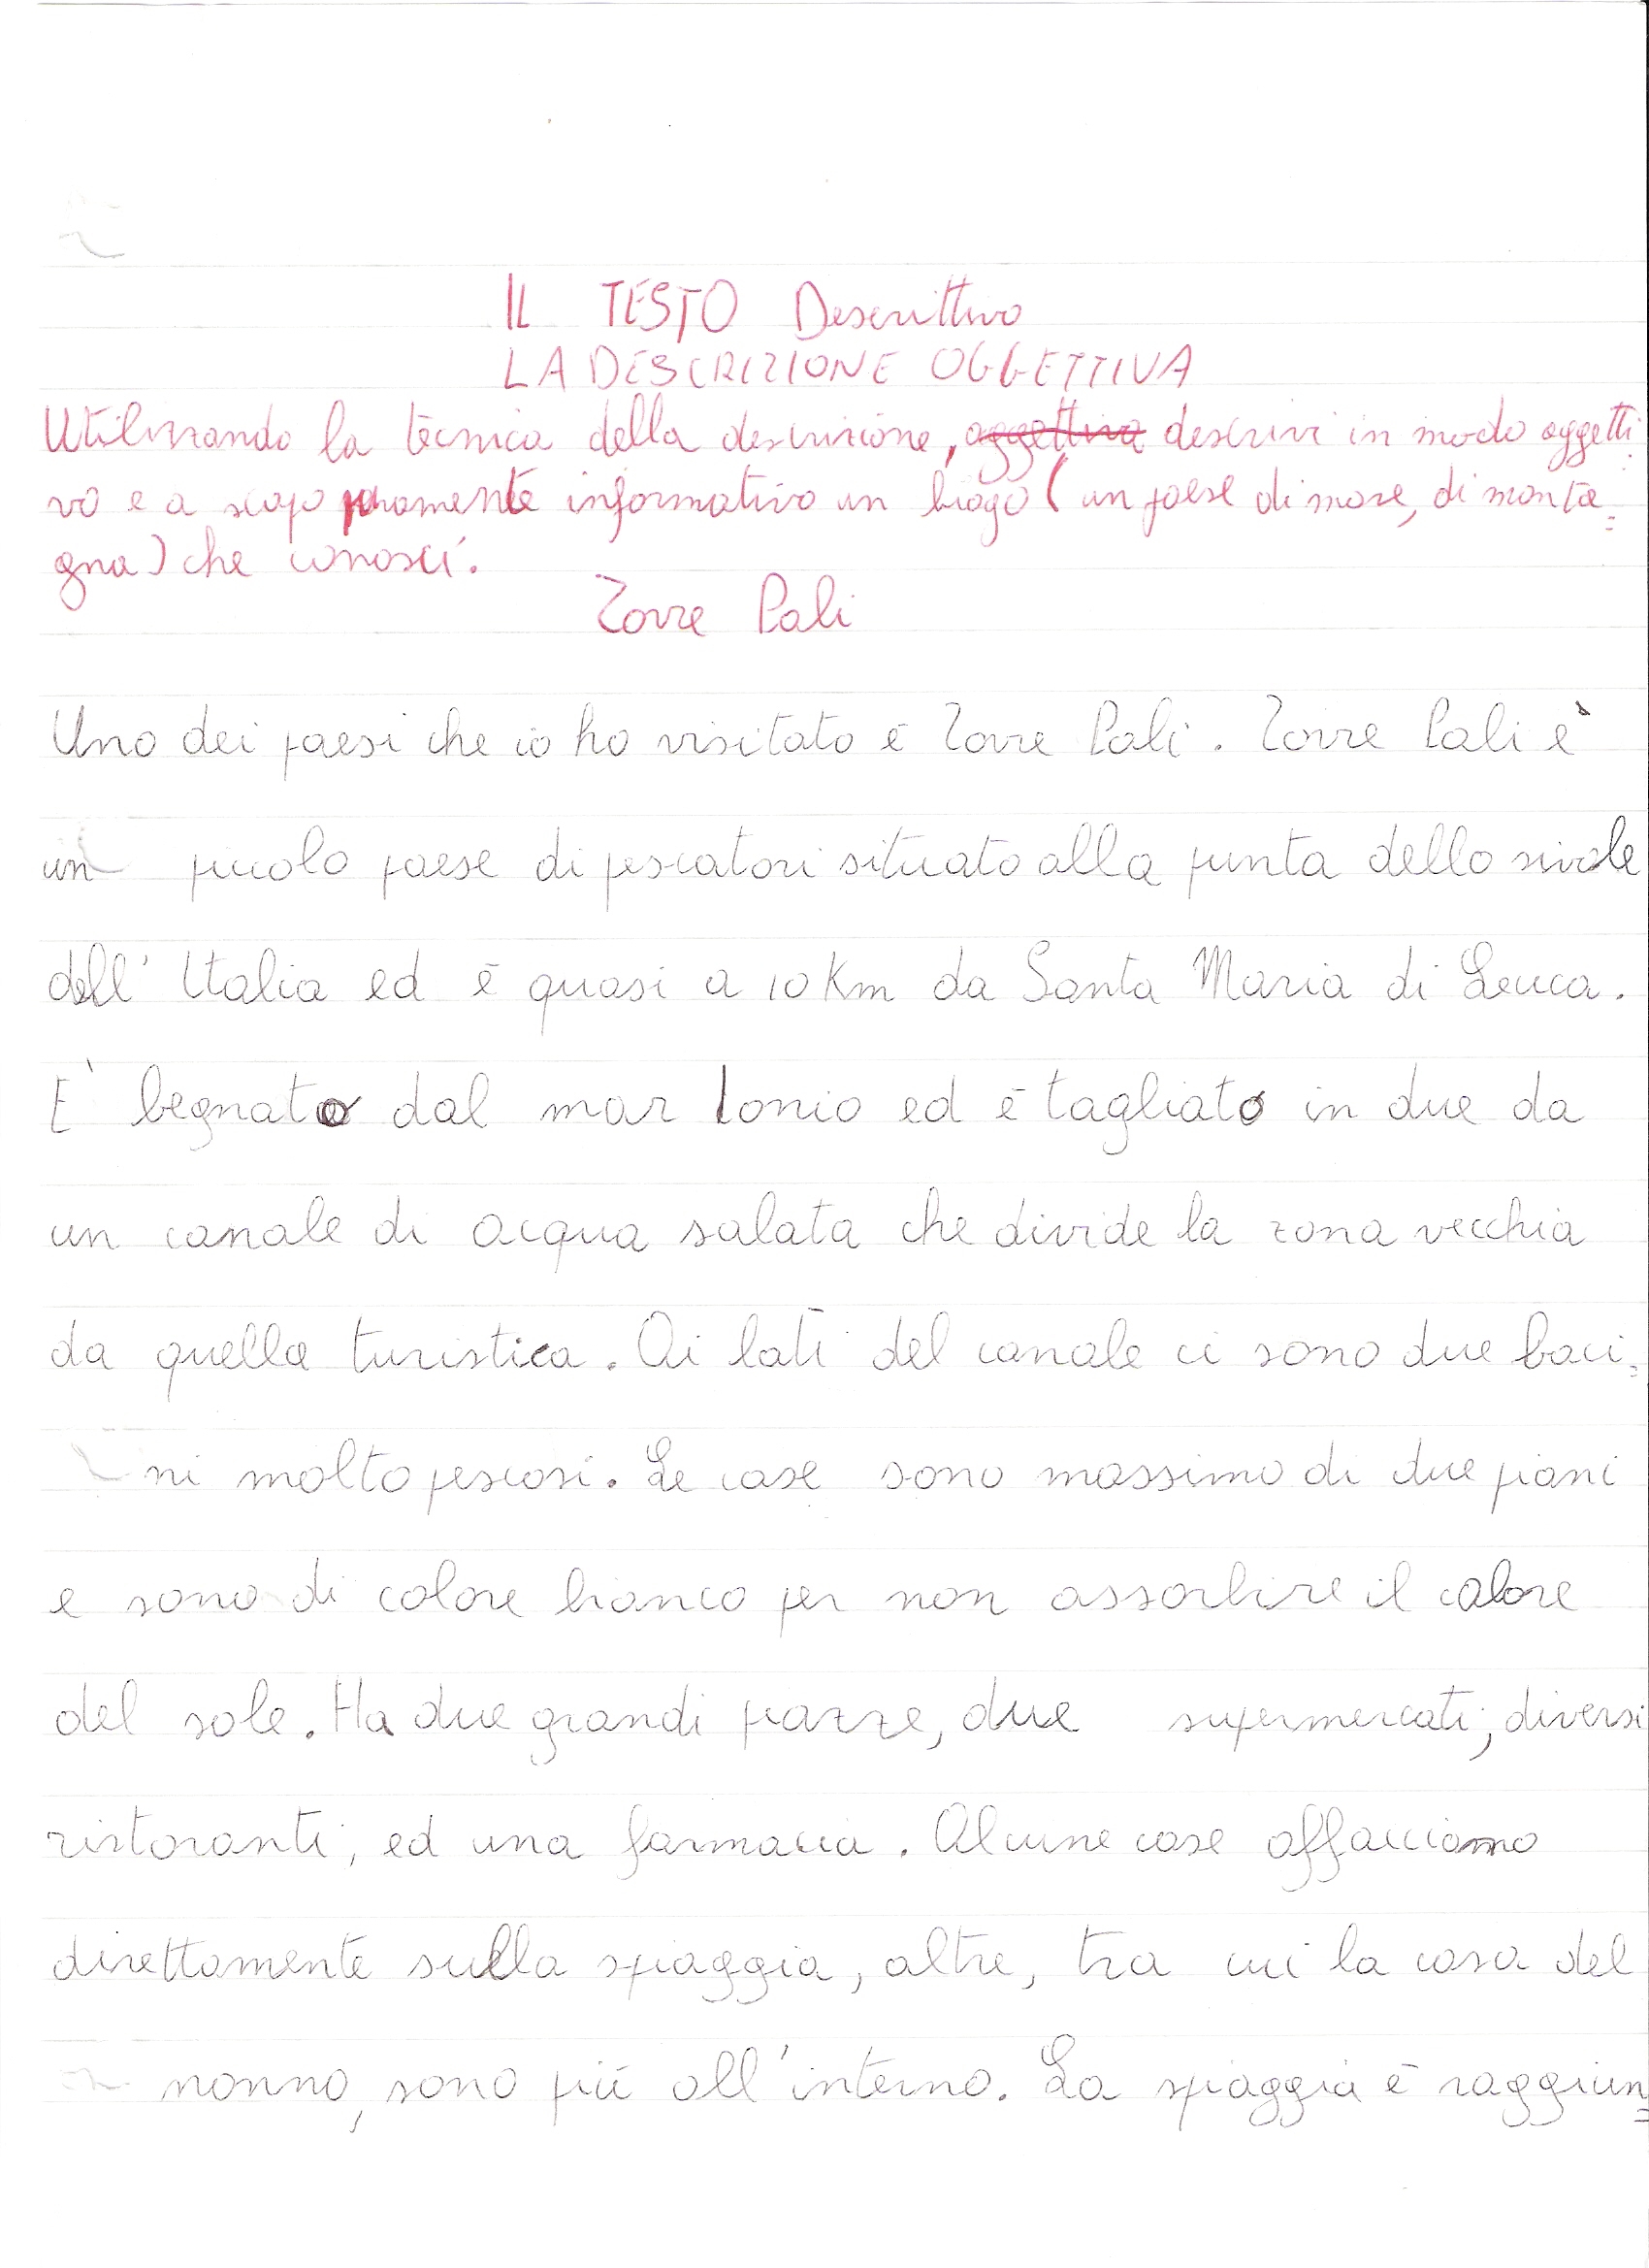 IL TESTO Descrittivo
LA DESCRIZIONE OGGETTIVA
Utilizzando la tecnica della descrizione, oggettiva descrivi in modo oggetti
vo e a scopo puramente informativo un luogo (un paese di mare, di monta=
gna) che conosci.
Torre Pali
Uno dei paesi che io ho visitato è Torre Pali. Torre Pali è
un piccolo paese di pescatori situato alla punta dello stivale
dell'Italia ed è quasi a 10 Km da Santa Maria di Leuca.
E' begnato dal mar Ionio ed è tagliato in due da
un canale di acqua salata che divide la zona vecchia
da quella turistica. Ai lati del canale ci sono due baci=
ni molto pescosi. Le case sono massimo di due piani
e sono di colore bianco per non assorbire il calore
del sole. Ha due grandi piazze, due supermercati, diversi
ristoranti, ed una farmacia. Alcune case affacciano
direttamente sulla spiaggia, altre, tra cui la casa del
nonno, sono più all'interno. La spiaggia è raggiun=